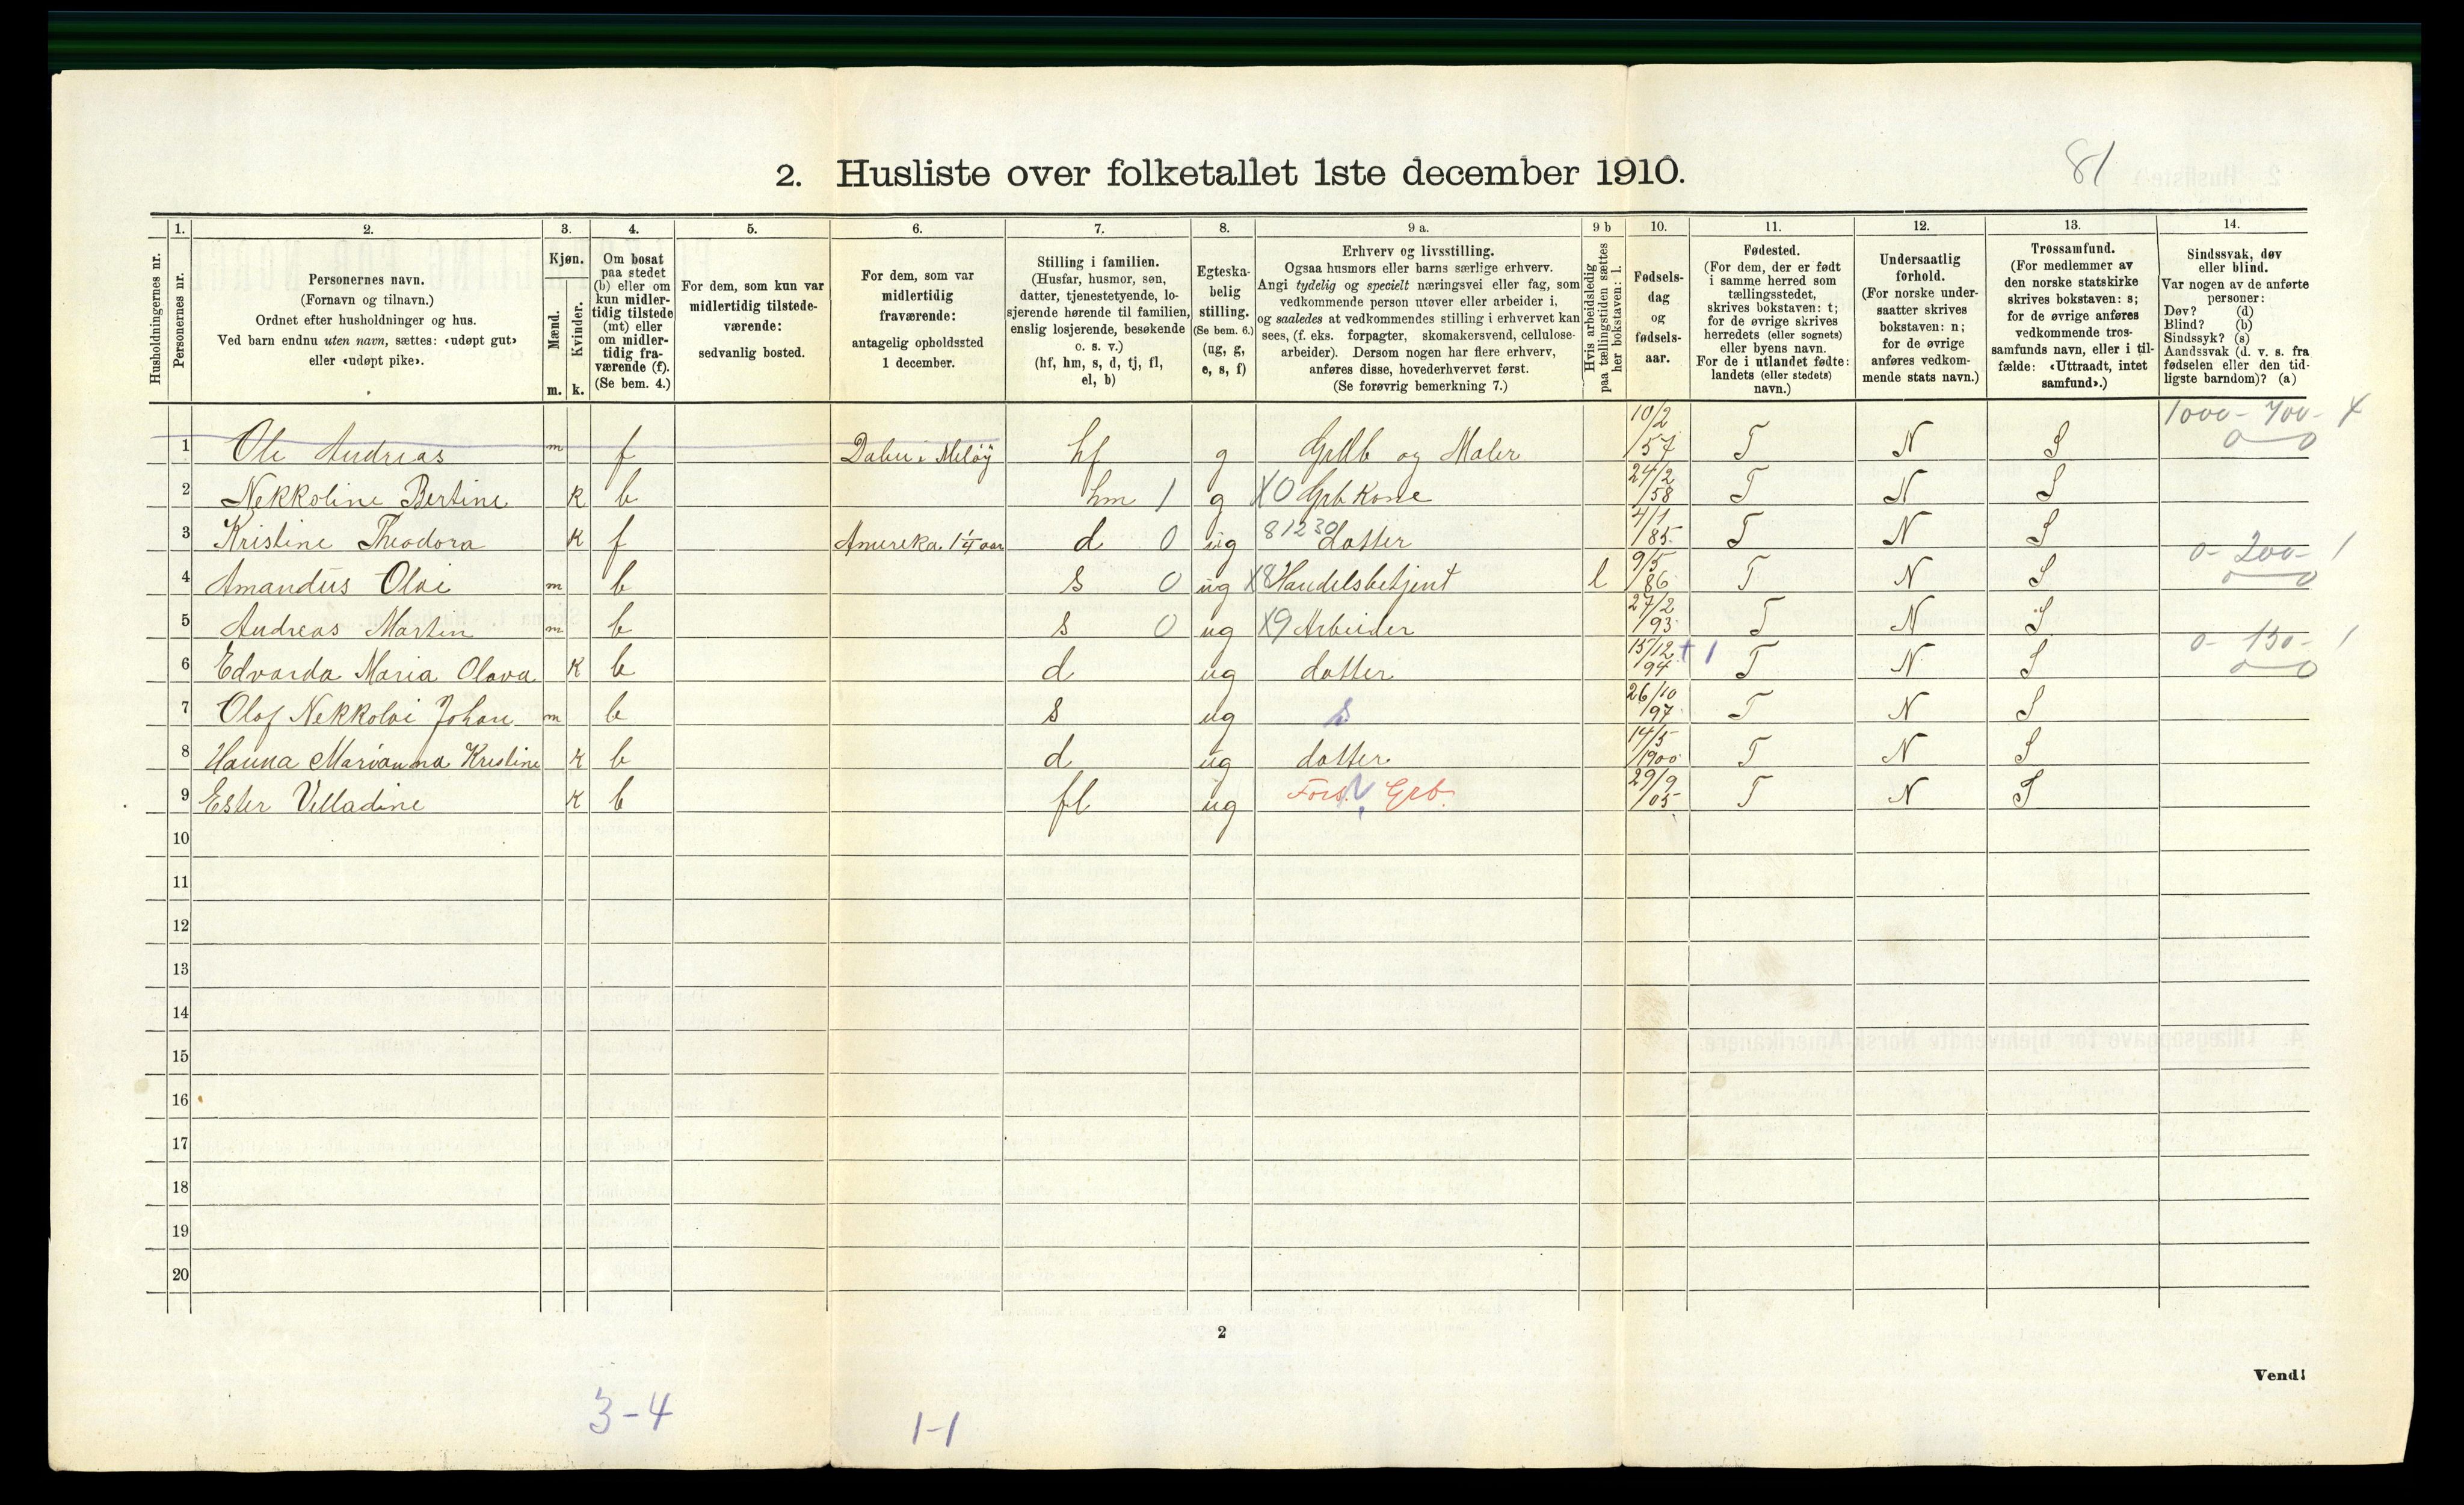 81
2. Husliste over folketallet 1ste december 1910.
Husholdningernes nr.
1. Personernes nr.
2. Personernes navn.
(Fornavn og tilnavn.)
Ordnet efter husholdninger og hus.
Ved barn endnu uten navn, sættes: «udøpt gut»
eller «udøpt pike».
3. Kjøn.
Mænd. m.
Kvinder. k.
4. Om bosat
paa stedet
(b) eller om
kun midler-
tidig tilstede
(mt) eller
om midler-
tidig fra-
værende (f).
(Se bem. 4.)
5. For dem, som kun var
midlertidig tilstede-
værende:
sedvanlig bosted.
6. For dem, som var
midlertidig
fraværende:
antagelig opholdssted
1 december.
7. Stilling i familien.
(Husfar, husmor, søn,
datter, tjenestetyende, lo-
sjerende hørende til familien,
enslig losjerende, besøkende
o. s. v.)
(hf, hm, s, d, tj, fl,
el, b)
8. Egteska-
belig
stilling.
(Se bem. 6.)
(ug, g,
e, s, f)
9 a. Erhverv og livsstilling.
Ogsaa husmors eller barns særlige erhverv.
Angi tydelig og specielt næringsvei eller fag, som
vedkommende person utøver eller arbeider i,
og saaledes at vedkommendes stilling i erhvervet kan
sees, (f. eks. forpagter, skomakersvend, cellulose-
arbeider). Dersom nogen har flere erhverv,
anføres disse, hovederhvervet først.
(Se forøvrig bemerkning 7.)
9 b Hvis arbeidsledig
paa tællingstiden sættes
her bokstaven: l.
10. Fødsels-
dag
og
fødsels-
aar.
11. Fødested.
(For dem, der er født
i samme herred som
tællingsstedet,
skrives bokstaven: t;
for de øvrige skrives
herredets (eller sognets)
eller byens navn.
For de i utlandet fødte:
landets (eller stedets)
navn.)
12. Undersaatlig
forhold.
(For norske under-
saatter skrives
bokstaven: n;
for de øvrige
anføres vedkom-
mende stats navn.)
13. Trossamfund.
(For medlemmer av
den norske statskirke
skrives bokstaven: s;
for de øvrige anføres
vedkommende tros-
samfunds navn, eller i til-
fælde: «Uttraadt, intet
samfund».)
14. Sindssvak, døv
eller blind.
Var nogen av de anførte
personer:
Døv? (d)
Blind? (b)
Sindssyk? (s)
Aandssvak (d. v. s. fra
fødselen eller den tid-
ligste barndom)? (a)
1 Ole Andreas m f Dalen i Meløy hf g Grdb og Maler 10/2 /57 T N S 1000 - 700 - 4 0 0
2 Nekkoline Bertine K b hm 1 g X0 Grb Kone 24/2 /58 T N S
3 Kristine Theodora K f Amereka 1¼ aar d 0 ug 81230 datter 4/1 /85 T N S
4 Amandus Olai m b s 0 ug X8 Handelsbetjent l 9/5 /86 T N S 0 - 200 - 1 0 0
5 Andreas Martin m b s 0 ug X9 Arbeider 27/2 /93 T N S
6 Edvarda Maria Olava K b d ug datter 15/12 /94 + 1 T N S 0 - 150 - 1 0 0
7 Olaf Nekkolai Johan m b s ug s 26/10 /97 T N S
8 Hanna Marianna Kristine K b d ug datter 14/5 /1900 T N S
9 Ester Villadine K b fl ug Fors. Grb. 29/9 /05 T N S
10
11
12
13
14
15
16
17
18
19
20
2
Vend!
3-4
1-1